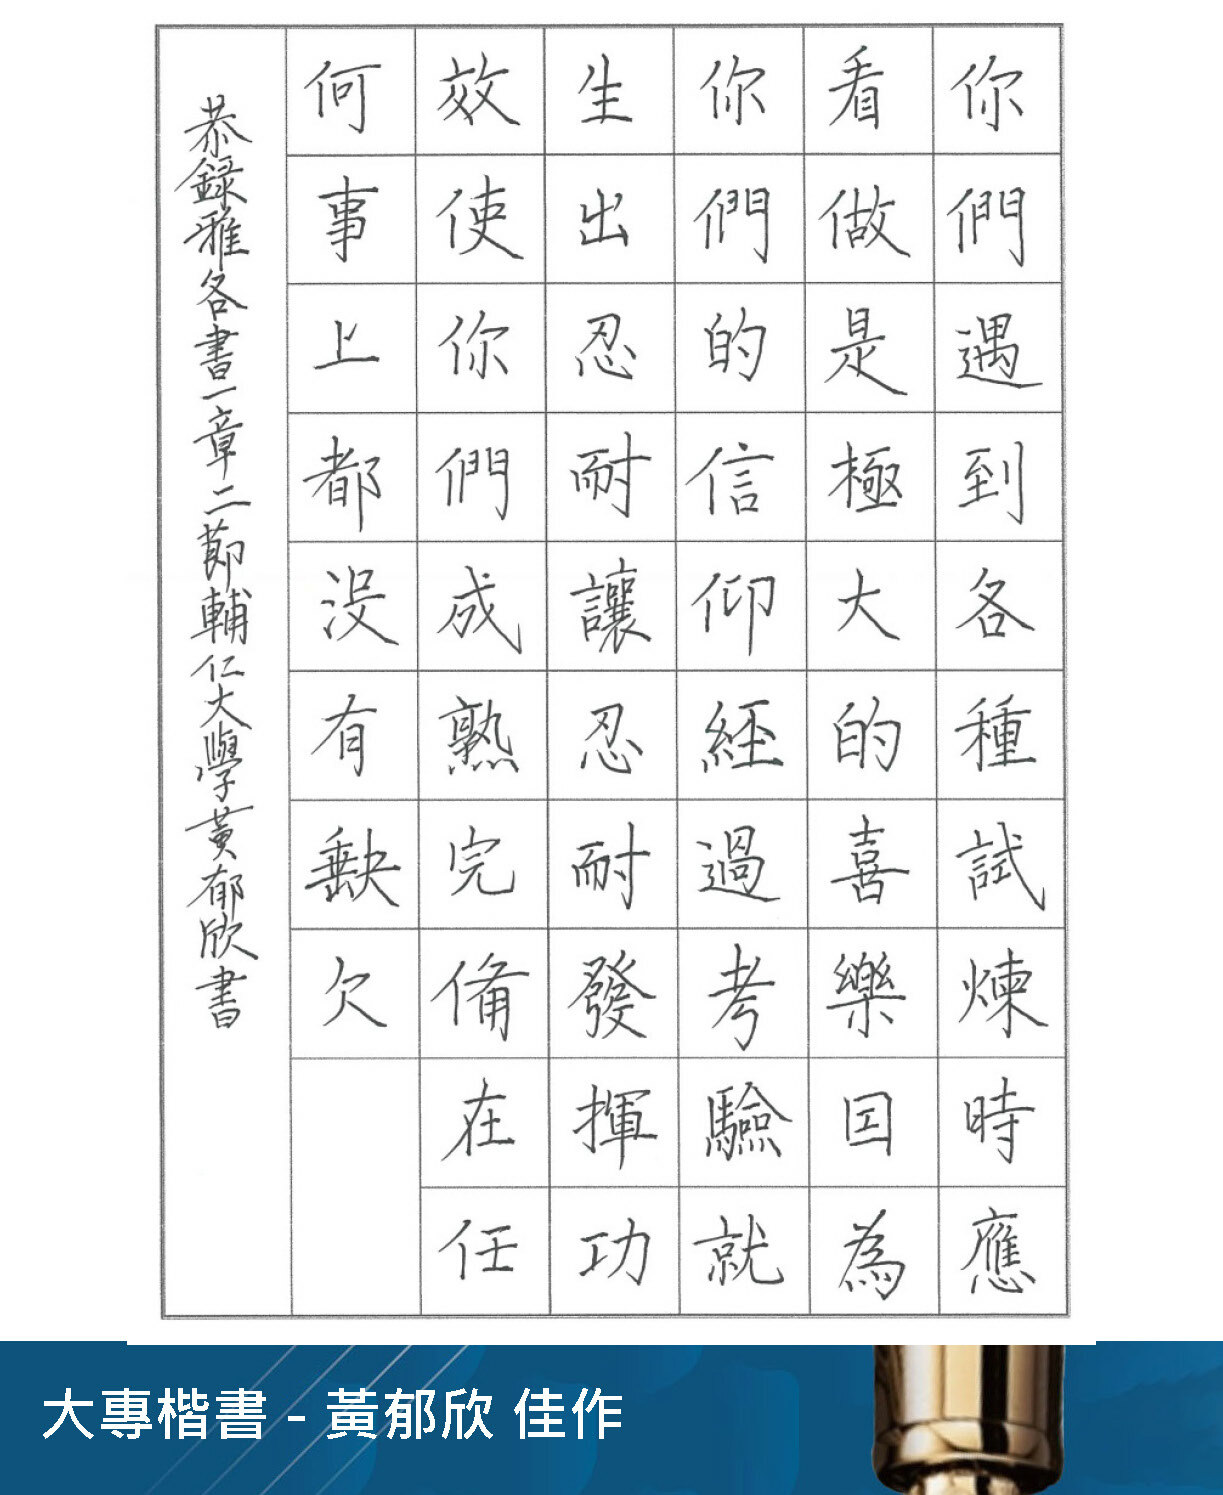 你們遇到各種試煉時應
看做是極大的喜樂因為
你們的信仰經過考驗就
生出忍耐讓忍耐發揮功
效使你們成熟完備在任
何事上都沒有缺欠
恭錄雅各書一章二節輔仁大學黃郁欣書
大專楷書 - 黃郁欣 佳作